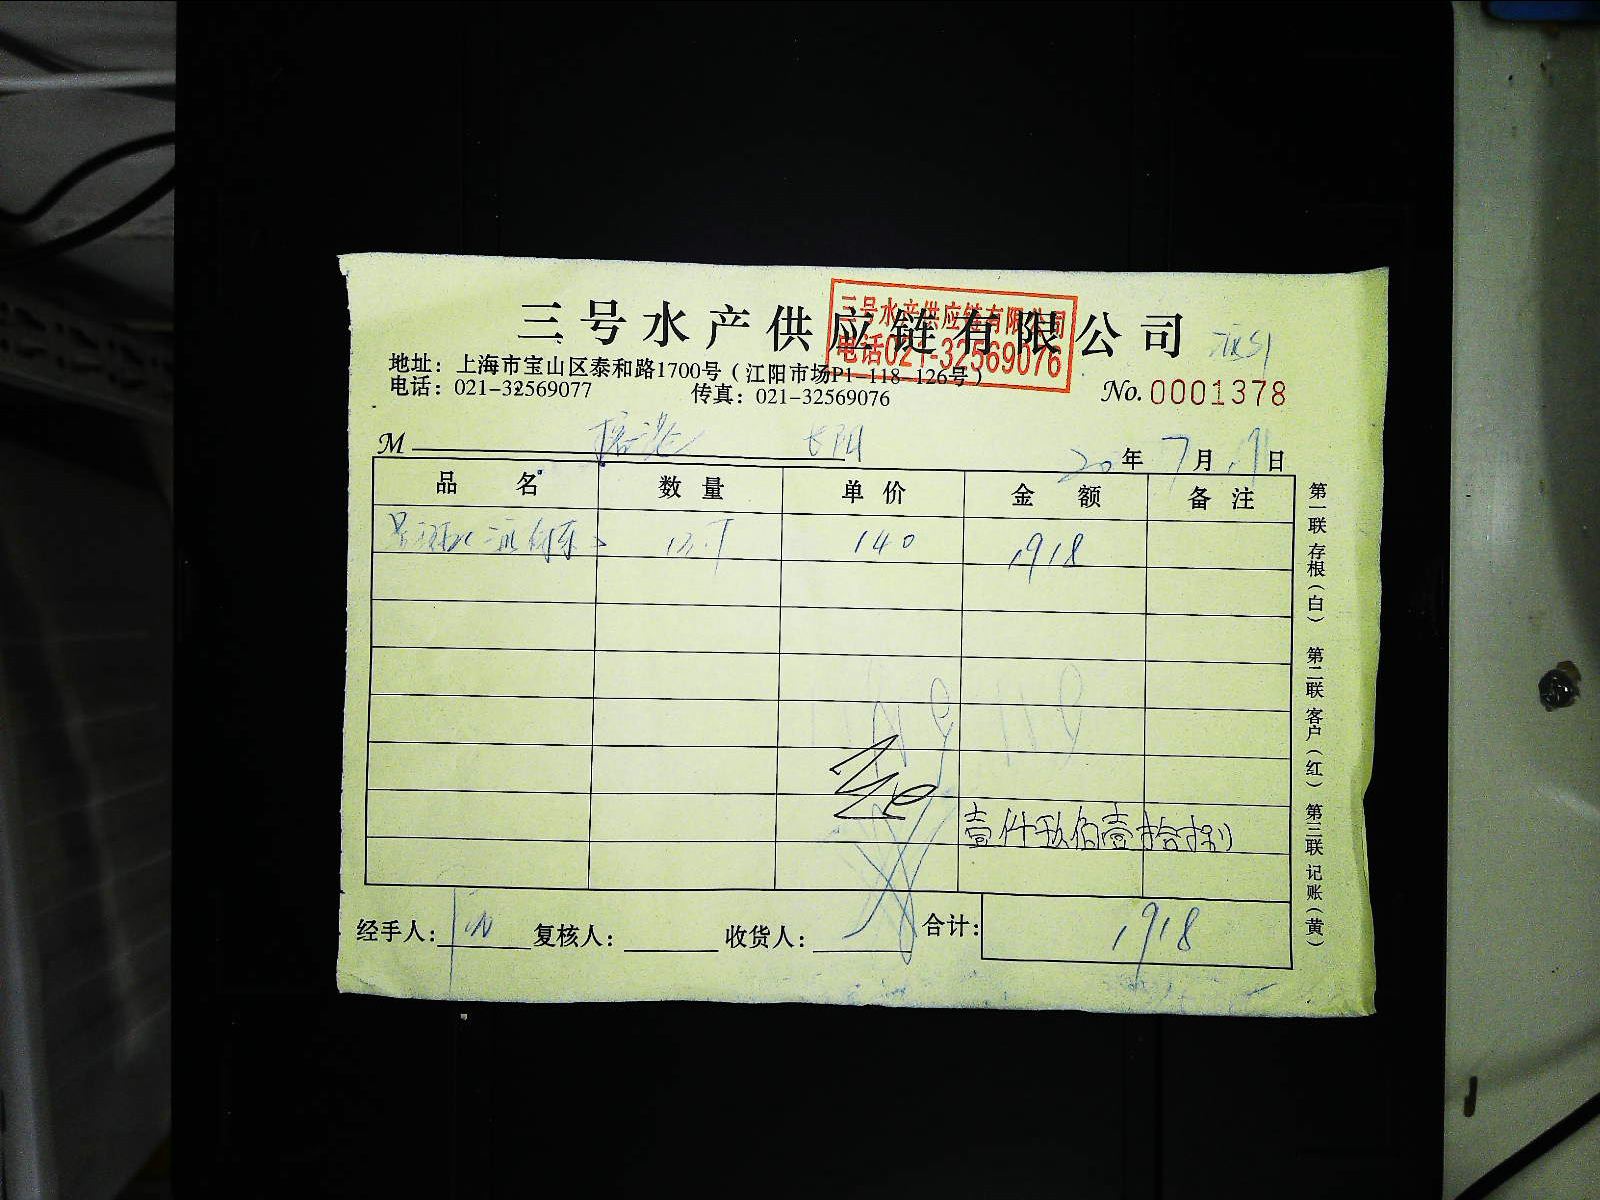 三号水产供应链有限公司
三号水产供应链有限公司
电话021-32569076
地址：上海市宝山区泰和路1700号（江阳市场P1-118-126号）
电话：021-32569077 传真：021-32569076
No. 0001378
M
20年7月19日
品名 数量 单价 金额 备注
140 1918
壹仟玖佰壹拾捌
经手人： 复核人： 收货人： 合计： 1918
第一联 存根（白） 第二联 客户（红） 第三联 记账（黄）